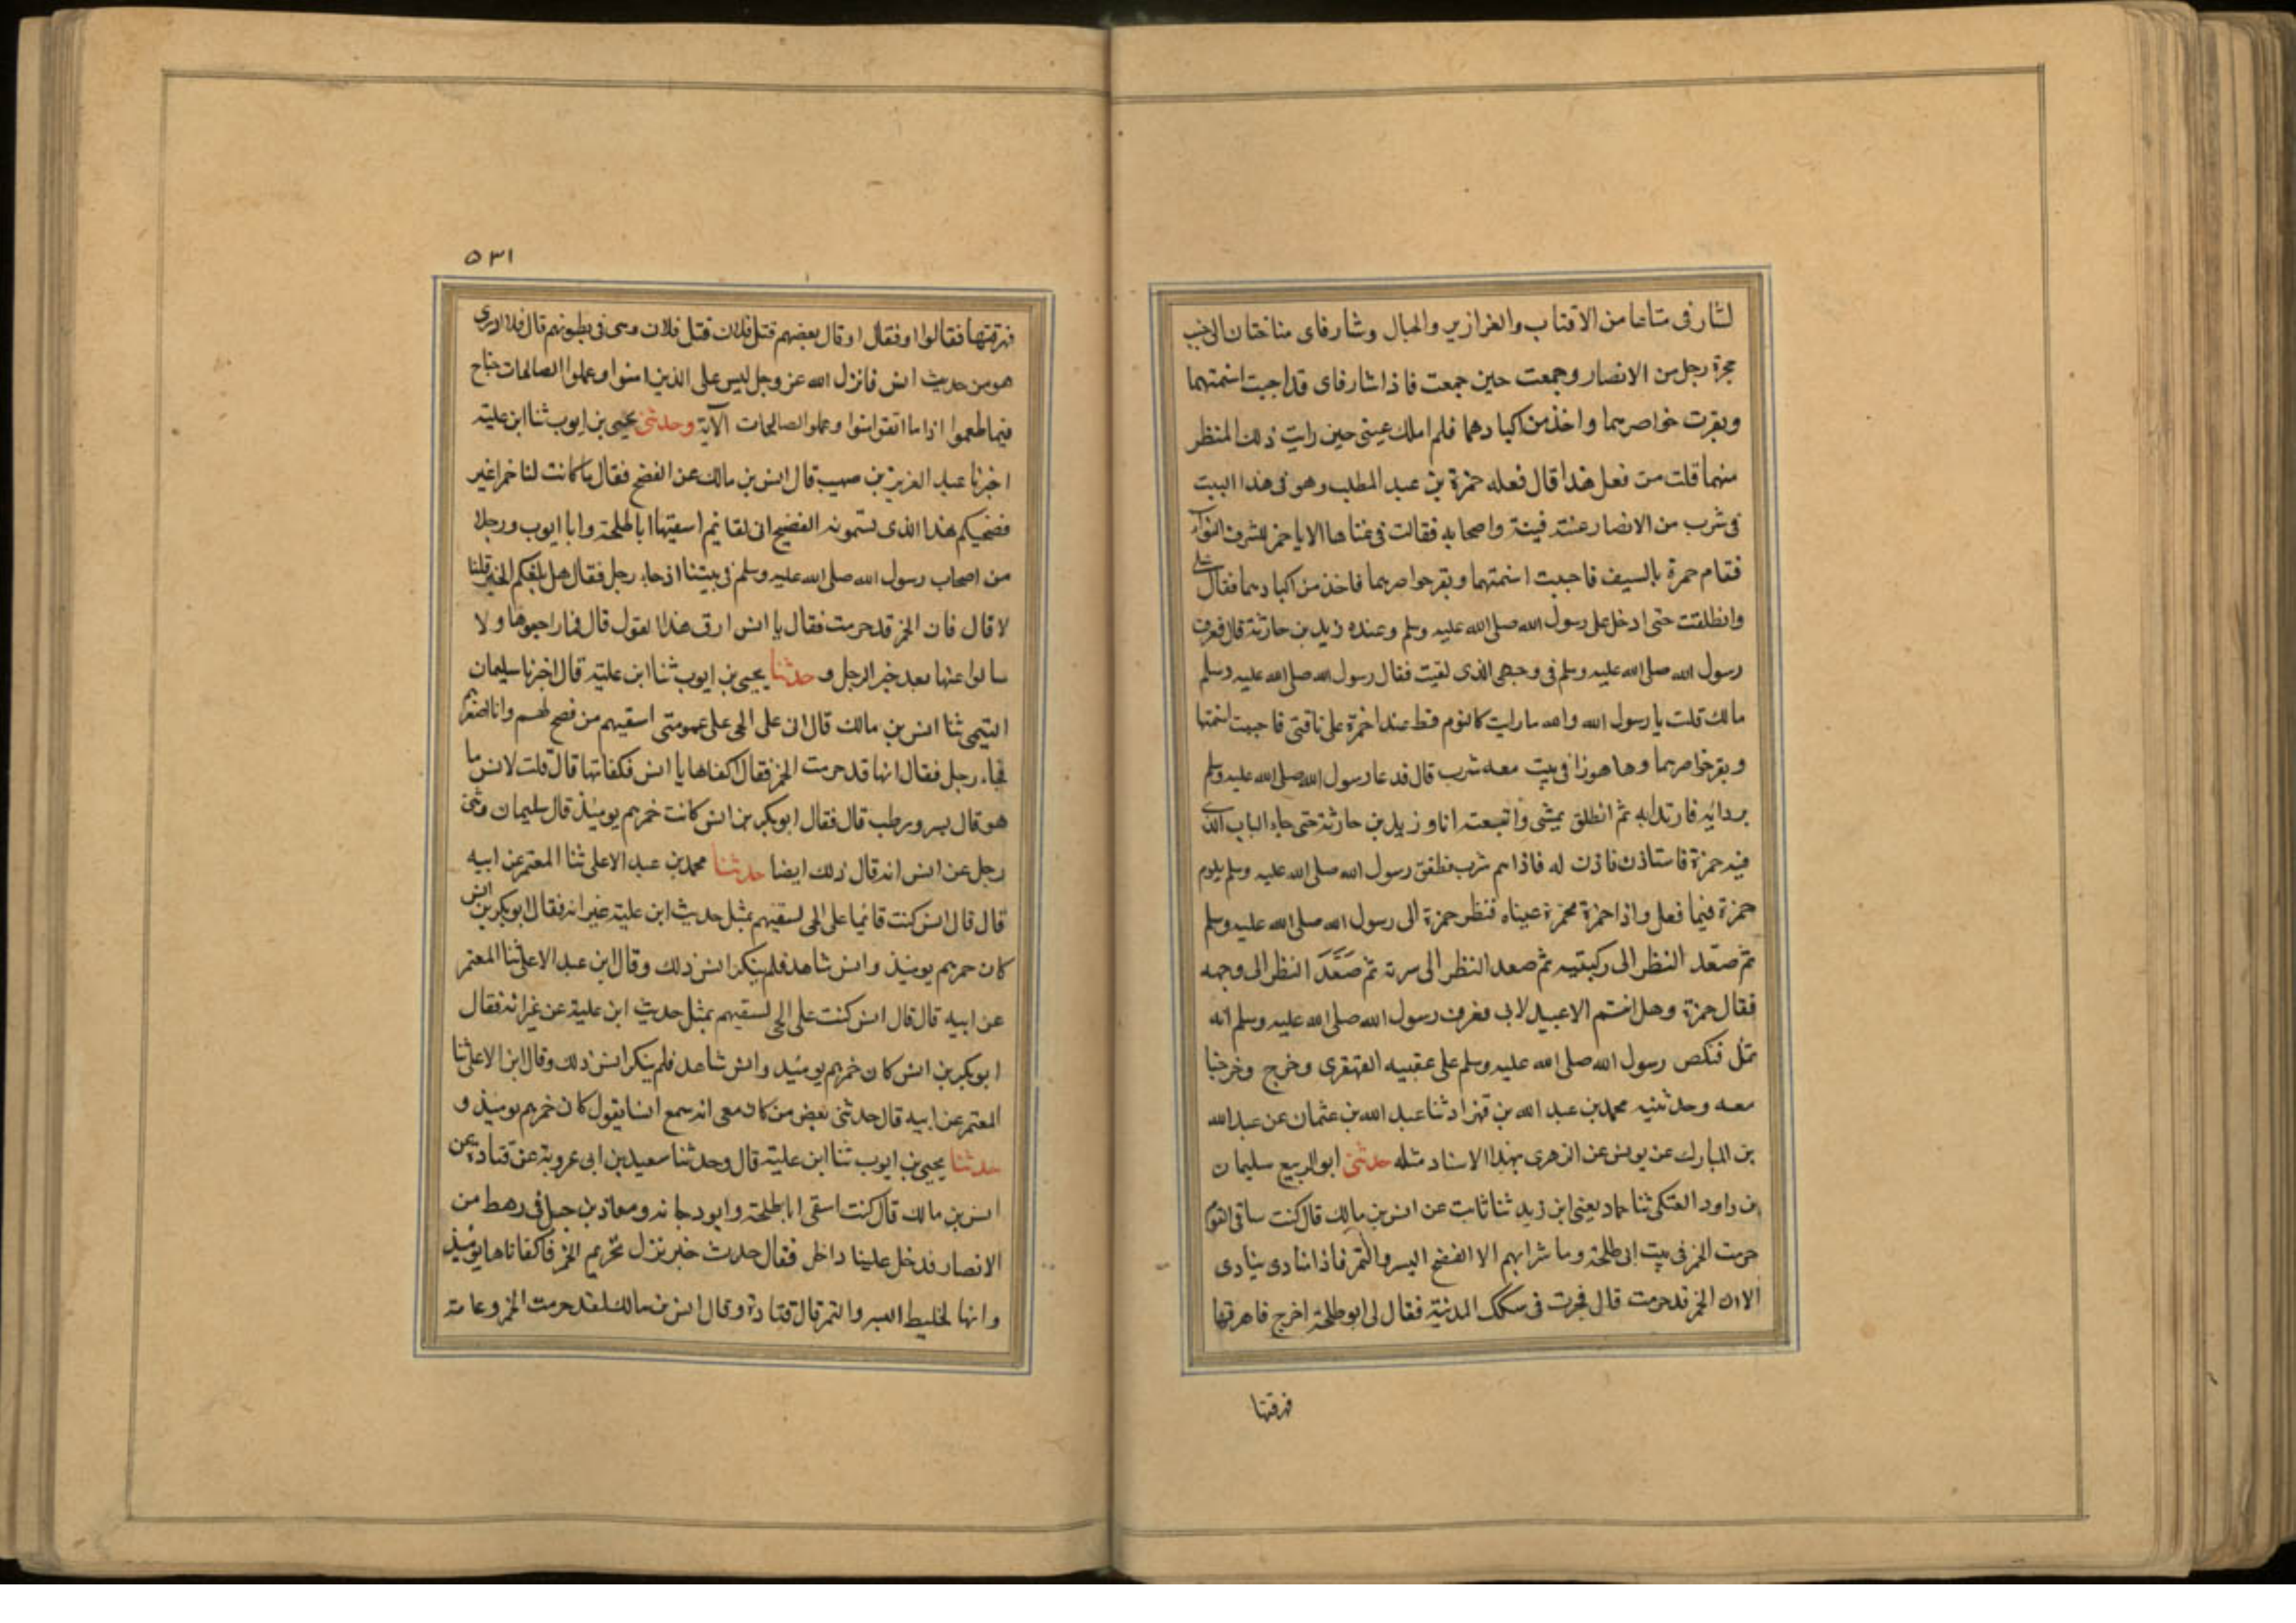 لشارفى متاعا من الاقتاب والغرازير والحبال وشارفاى مناختان الى جنب
حجرة رجل من الانصار وجمعت حين جمعت فاذا شارفاى قد اجبت اسنمتهما
وبقرت خواصرهما واخذ من اكبادهما فلم املك عينى حين رايت ذلك المنظر
منهما قلت من فعل هذا قال فعله حمزة بن عبد المطلب وهو فى هذا البيت
فى شرب من الانصار غنته قينة واصحابه فقالت فى غناها الا يا حمز للشرف النواء
فقام حمزة بالسيف فاجبت اسنمتهما وبقر خواصرهما فاخذ من اكبادهما فقال على
وانطلقت حتى ادخل على رسول الله صلى الله عليه وسلم وعنده زيد بن حارثة قال فعرف
رسول الله صلى الله عليه وسلم فى وجهى الذى لقيت فقال رسول الله صلى الله عليه وسلم
مالك قلت يا رسول الله والله ما رايت كاليوم قط عدا حمزة على ناقتى فاجبت اسنمتها
وبقر خواصرهما وها هو ذا فى بيت معه شرب قال فدعا رسول الله صلى الله عليه وسلم
بردائه فارتدا به ثم انطلق يمشى واتبعته انا وزيد بن حارثة حتى جاء الباب الذى
فيه حمزة فاستاذن فاذن له فاذا هم شرب فطفق رسول الله صلى الله عليه وسلم يلوم
حمزة فيما فعل واذا حمزة محمرة عيناه فنظر حمزة الى رسول الله صلى الله عليه وسلم
ثم صعّد النظر الى ركبتيه ثم صعد النظر الى سرته ثم صَعَّدَ النظر الى وجهه
فقال حمزة وهل انتم الا عبيد لابى فعرف رسول الله صلى الله عليه وسلم انه
ثمل فنكص رسول الله صلى الله عليه وسلم على عقبيه القهقرى وخرج وخرجنا
معه وحدثنيه محمد بن عبد الله بن قهزاد ثنا عبد الله بن عثمان عن عبد الله
بن المبارك عن يونس عن الزهرى بهذا الاسناد مثله حدثنى ابو الربيع سليمان
بن داود العتكى ثنا حماد يعنى ابن زيد ثنا ثابت عن انس بن مالك قال كنت ساقى القوم
حرمت الخمر فى بيت ابى طلحة وما شرابهم الا الفضخ البسر والتمر فاذا منادى ينادى
الا ان الخمر قد حرمت قال فجرت فى سكك المدنية فقال لى ابو طلحة اخرج فاهرقها
فهرقتها
٥٣١
فهرقتها فقالوا او فقال او قال بعضهم قتل فلان قتل فلان وهى فى بطونهم قال فلا ادرى
هو من حديث انس فانزل الله عز وجل ليس على الذين امنوا وعملوا الصالحات جناح
فيما طعموا اذا ما اتقوا امنوا وعملوا الصالحات الآية وحدثنى يحيى بن ايوب ثنا ابن علية
اخبرنا عبد العزيز بن صهيب قال انس بن مالك عن الفضخ فقال ما كانت لنا خمرا غير
فضخيكم هذا الذى تسمونه الفضيح انى لقائم اسقيتها ابا طلحة وابا ايوب ورجلا
من اصحاب رسول الله صلى الله عليه وسلم فى بيتنا اذ جاء رجل فقال هل بلغكم الخبر قلنا
لا قال فان الخمر قد حرمت فقال يا انس ارق هذا القول قال فما راجعوها ولا
سالوا عنها بعد خبر الرجل و حدثنا يحيى بن ايوب ثنا ابن علية قال اخبرنا سليمان
التيمى ثنا انس بن مالك قال انى على الحى على عمومتى اسقيهم من فضح لهم وانا اصغرهم
فجاء رجل فقال انها قد حرمت الخمر فقال اكفاها يا انس فكفاتها قال قلت لانس ما
هو قال بسر ورطب قال فقال ابو بكر بن انس كانت خمرهم يوميذ قال سليمان وثنى
رجل عن انس انه قال ذلك ايضا حدثنا محمد بن عبد الاعلى ثنا المعتمر عن ابيه
قال قال انس كنت قائما على الحى لسقيهم بمثل حديث ابن علية غير انه فقال ابو بكر بن انس
كان حمرهم يوميذ وانس شاهد فلم ينكر انس ذلك وقال ابن عبد الاعلى ثنا المعتمر
عن ابيه قال قال انس كنت على الحى لسقيهم بمثل حديث ابن علية عن غير انه فقال
ابو بكر بن انس كان خمرهم يوميد وانس شاهد فلم ينكر انس ذلك وقال ابن الاعلى ثنا
المعتمر عن ابيه قال حدثنى بعض من كان معى انه سمع انسا يقول كان خمرهم يوميذ و
حدثنا يحيى بن ايوب ثنا ابن علية قال وحدثنا سعيد بن ابى عروبة عن قتادة عن
انس بن مالك قال كنت اسقى ابا طلحة وابو دجانه ومعاذ بن جبل فى رهط من
الانصار فدخل علينا داخل فقال حدث خبر نزل تحريم الخمر فاكفاناها يوميذ
وانها لخليط البسر والتمر قال قتادة وقال انس بن مالك لقد حرمت الخمر وعامة